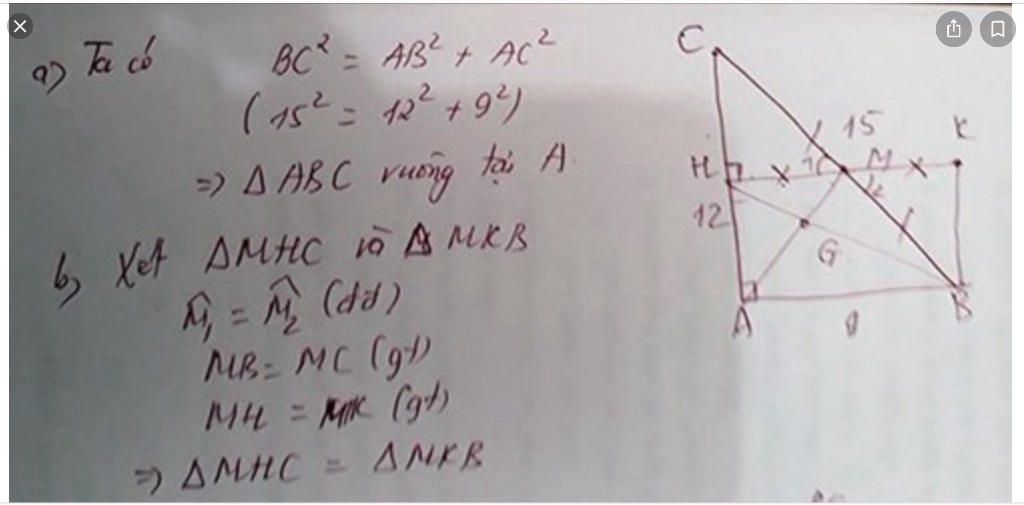 a) Ta có BC² = AB² + AC²
(15² = 12² + 9²)
=> Δ ABC vuông tại A.
b) Xét Δ MHC và Δ MKB
M̂₁ = M̂₂ (dd)
MB = MC (gt)
MH = MK (gt)
=> Δ MHC = Δ MKB
C
15
K
H
1
M
2
12
G
A
9
B